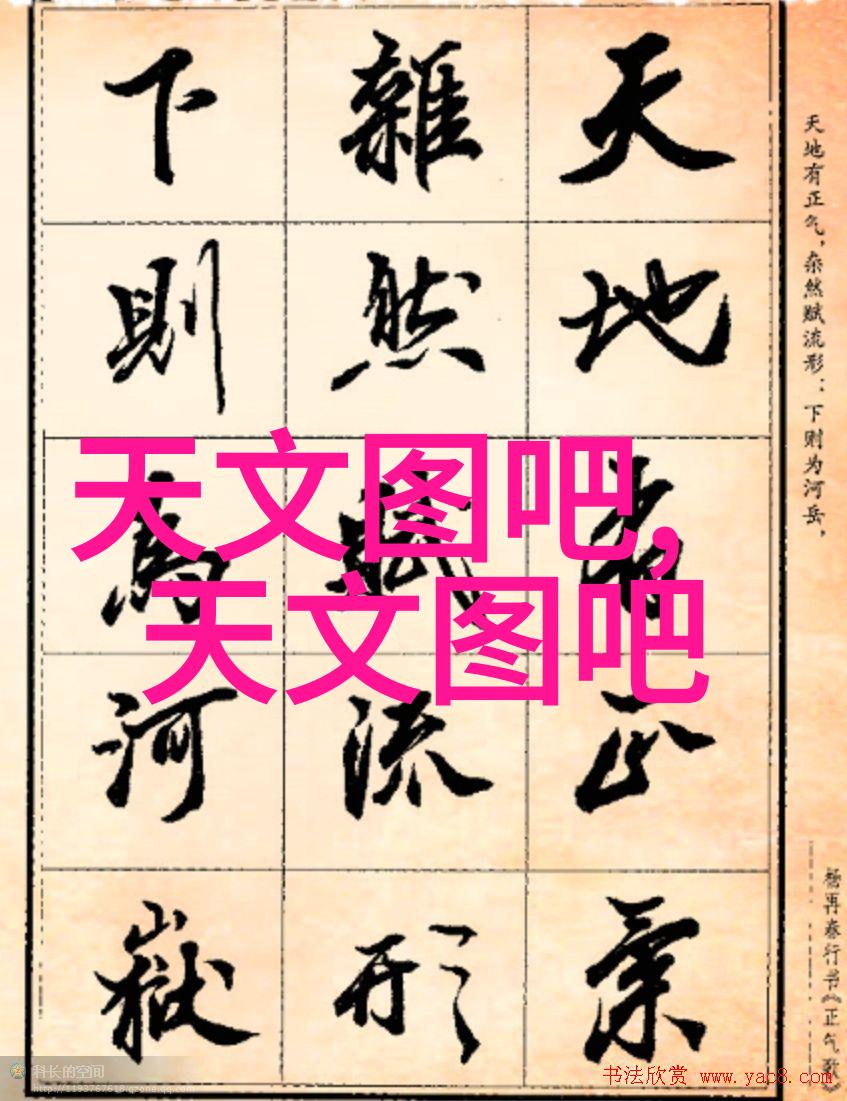 天地有正氣
雜然賦流形
下則為河嶽
天地有正气，杂然赋流形：下则为河岳，
杨再春行书《正气歌》
天文图吧，
天文图吧
科长的空间
http://1193767618.qzone.qq.com
书法欣赏 www.yac8.com